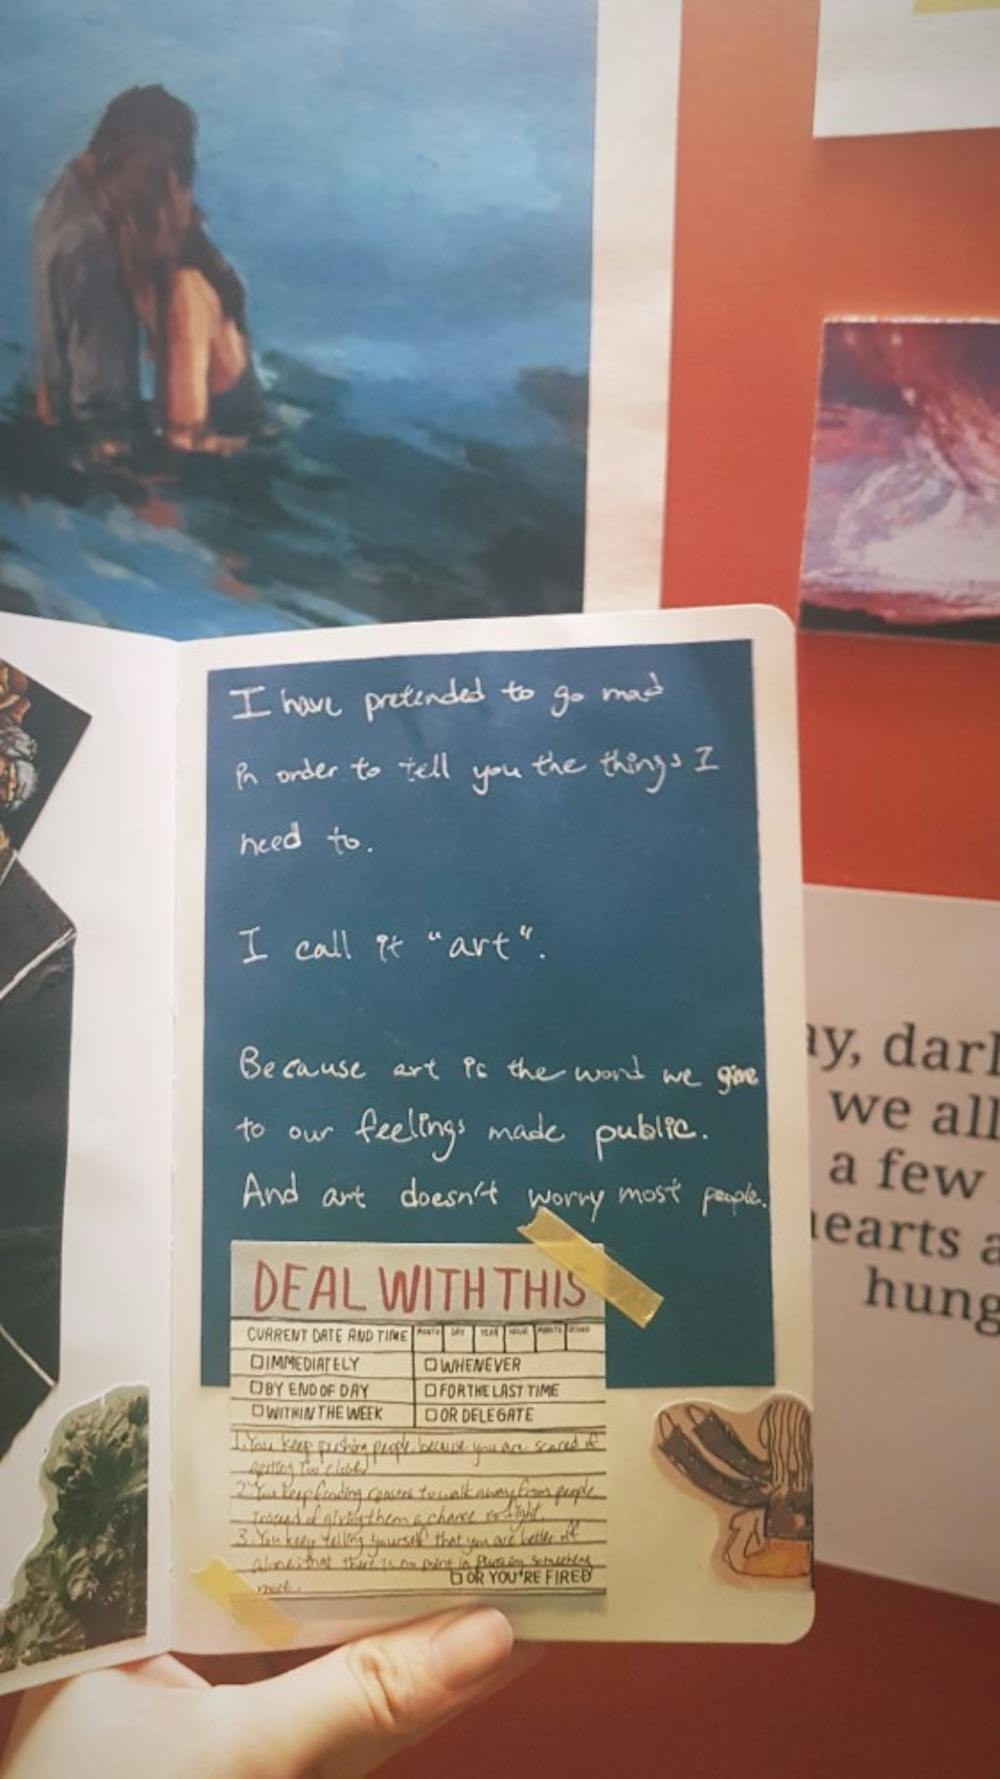 I have pretended to go mad
in order to tell you the things I
need to.
I call it "art".
Because art is the word we give
to our feelings made public.
And art doesn't worry most people.
DEAL WITH THIS
CURRENT DATE AND TIME MONTH DAY YEAR HOUR MINUTE SECOND
IMMEDIATELY WHENEVER
BY END OF DAY FOR THE LAST TIME
WITHIN THE WEEK OR DELEGATE
1. You keep pushing people because you are scared of
getting too close
2. You keep finding reasons to walk away from people
instead of giving them a chance to fight.
3. You keep telling yourself that you are better off
alone; that there is no point in something
more.
OR YOU'RE FIRED
ay, darl
we all
a few
hearts a
hung